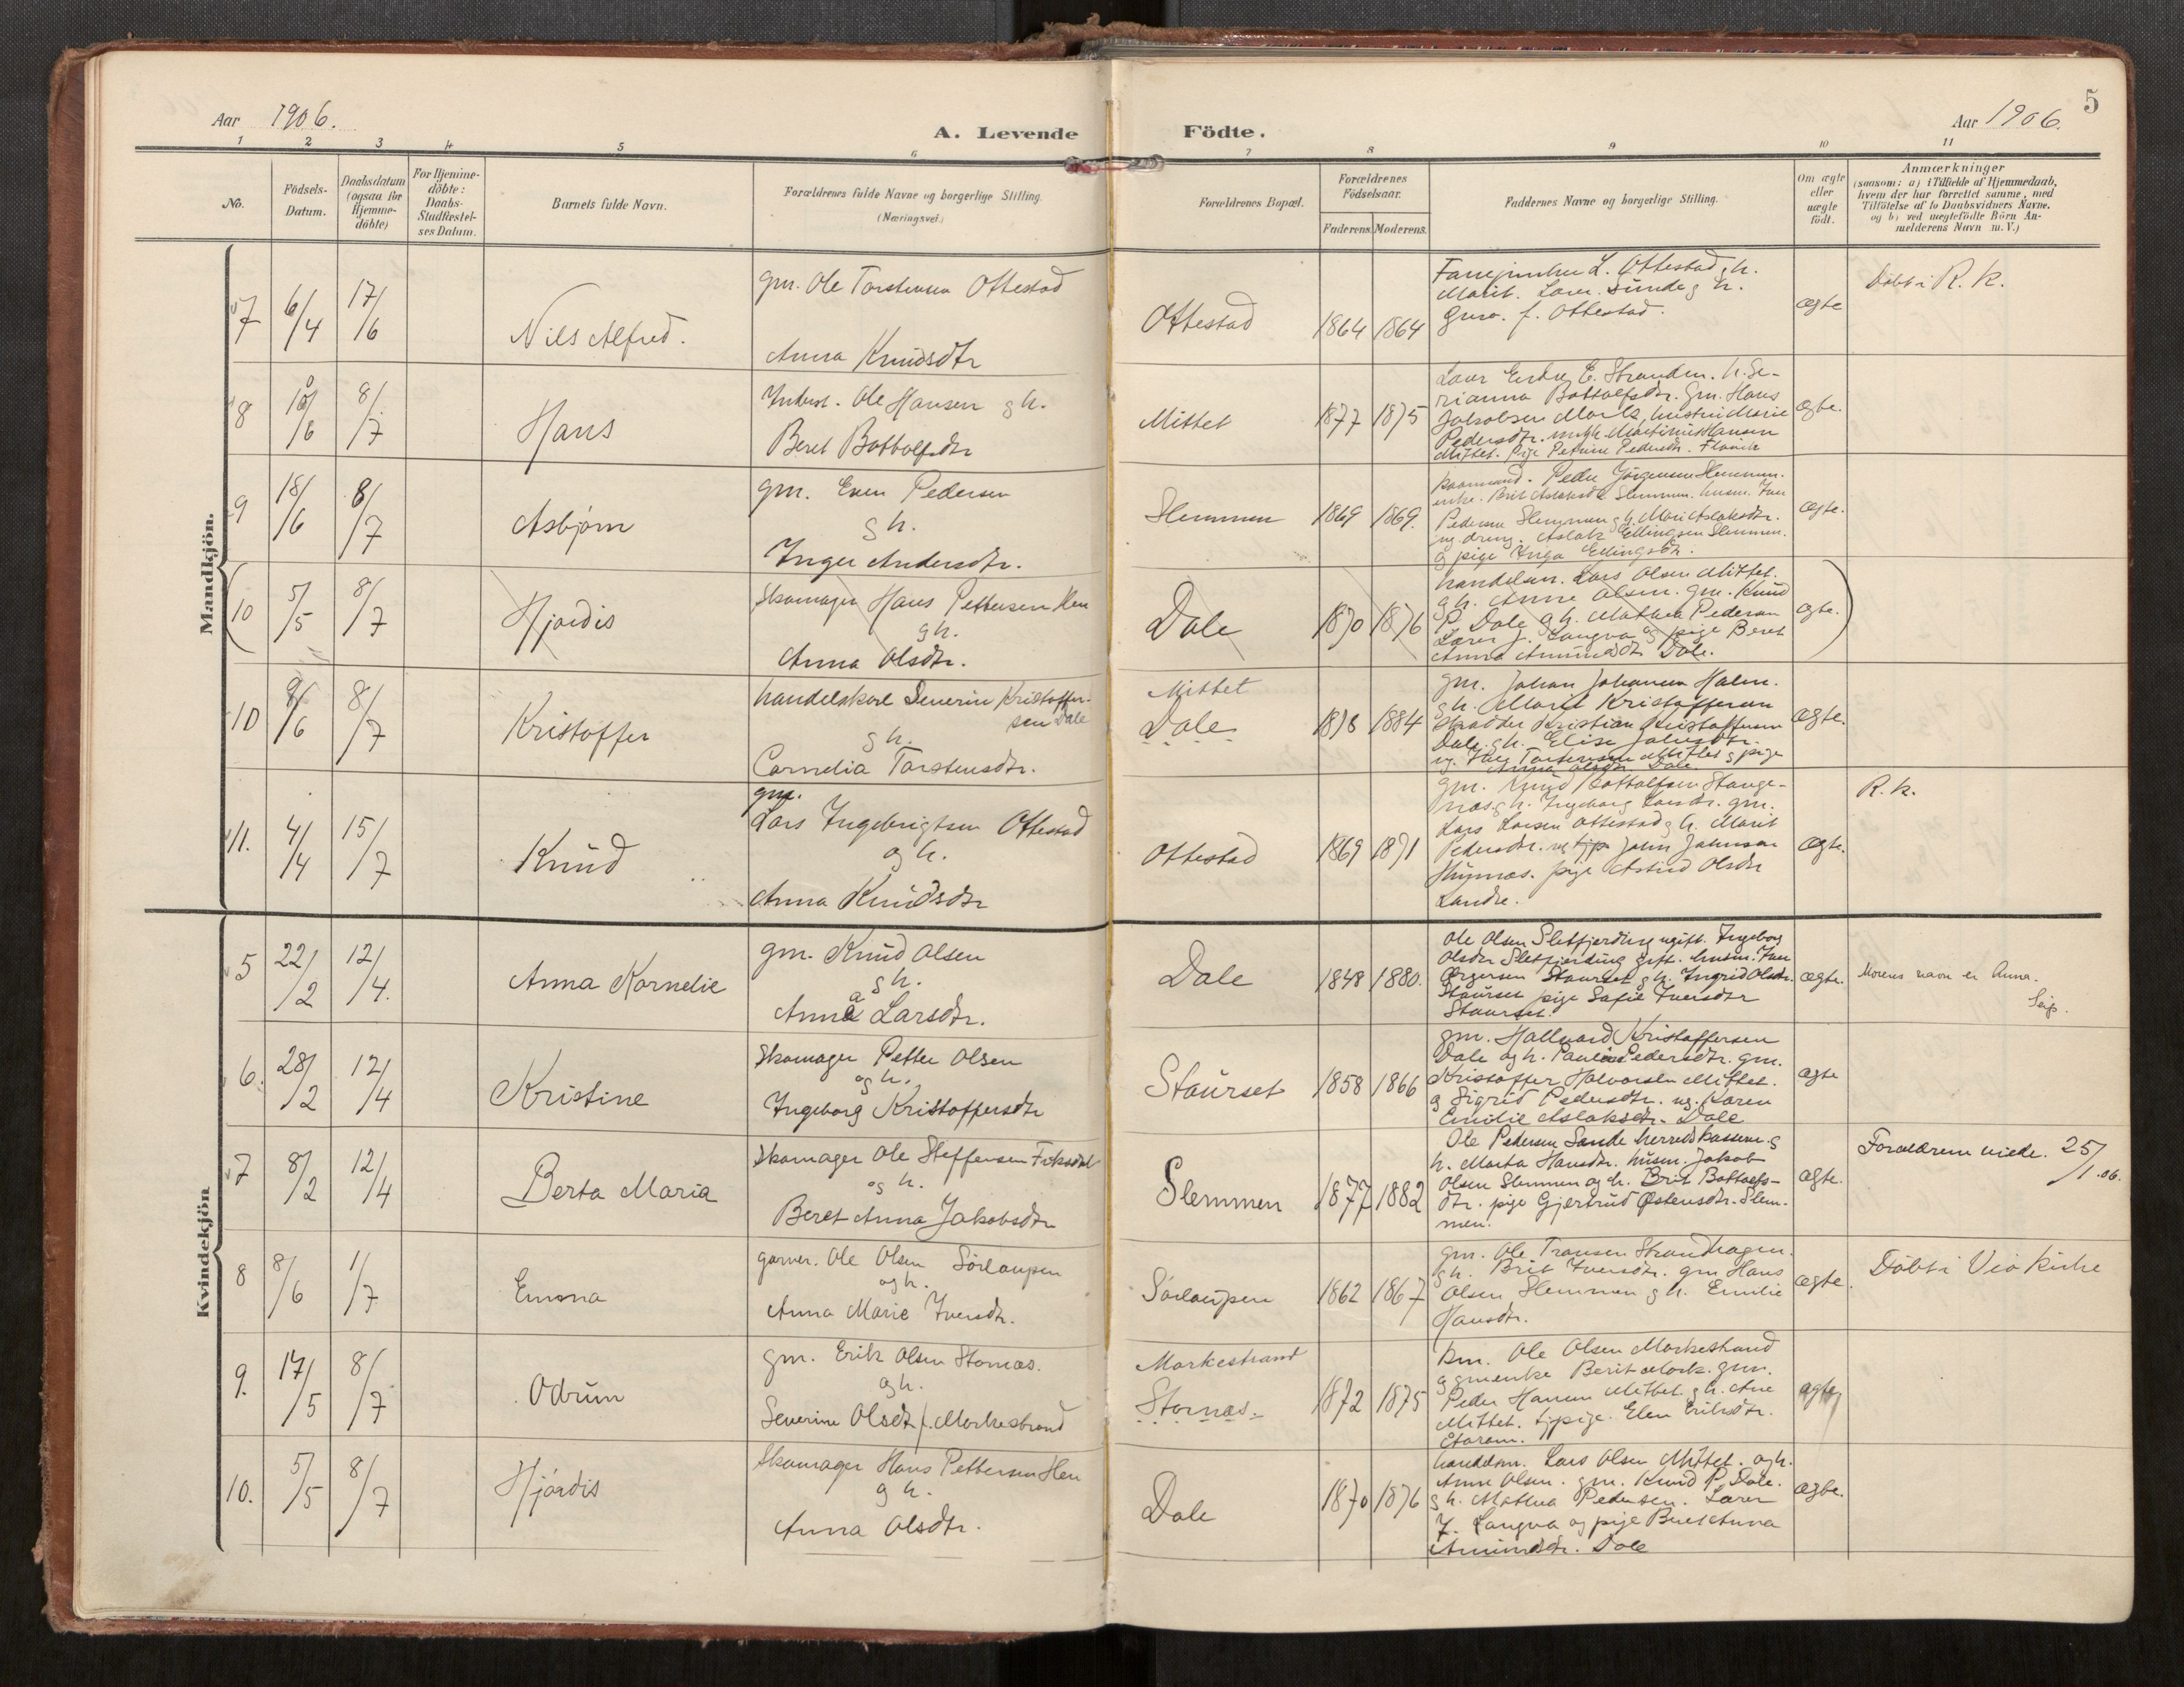 Aar 1906.
A. Levende Födte.
Aar 1906.
5
1 2 3 4 5 6 7 8 9 10 11
No.
Födsels-Datum.
Daabsdatum (ogsaa for Hjemme-döbte)
For Hjemme-döbte: Daabs-Stadfæstel-ses Datum.
Barnets fulde Navn.
Forældrenes fulde Navne og borgerlige Stilling. (Næringsvei.)
Forældrenes Bopæl.
Forældrenes Födselsaar.
Faderens. Moderens.
Faddernes Navne og borgerlige Stilling.
Om ægte eller uægte födt.
Anmærkninger
(saasom: a) i Tilfælde af Hjemmedaab,
hvem der har forrettet samme, med
Tilföielse af to Daabsvidners Navne,
og b) ved uægtefödte Börn An-
melderens Navn m. V.)
Mandkjön.
7 6/4 17/6 Nils Alfred.
gm. Ole Torstensen Ottestad
Anna Knudsdtr
Ottestad 1864 1864
L. Ottestad g h.
Marit. Lærer Sunde g h.
f. Ottestad.
ægte
Döbt i R. k.
8 10/6 8/7 Hans
Inderst. Ole Hansen g h.
Beret Bottolfsdtr
Mittet 1877 1875
Lærer E. Stranden. h. Se-
rianna Bottolfsdtr. Gm. Hans
Jakobsen Mork, hustru Marie
Pedersdtr. ungk. Martinus Hansen
Mittet. Pige Petrine Pedersdtr.
ægte.
9 18/6 8/7 Asbjørn
gm. Even Pedersen
g h.
Inger Andersdtr.
Slemmen 1869 1869.
Peder Jørgensen Slemmen.
enke. Brit Aslaksdtr Slemmen. husm. Iver
Pedersen Slemmen g h. Mari Aslaksdtr.
ug. dreng. Aslak Ellingsen Slemmen.
og pige Inga Ellingsdtr.
ægte.
(10 5/5 8/7 Hjordis
Skomager Hans Pettersen Hen
g h.
Anna Olsdtr.
Dale 1870 1876
handelsm. Lars Olsen Mittet.
g h. Anne Olsen. gm. Knud
P. Dale g h. Mathea Pedersen
Lærer J. Langva og pige Beret
Anna Amundsdtr Dale.
ægte.)
10 9/6 8/7 Kristoffer
handelskarl Severin Kristoffer-
sen Dale
g h.
Cornelia Torstensdtr.
Mittet
Dale 1878 1884
gm. Johan Johansen Holm.
g h. Marit Kristoffersen
Skrædder Kristian Kristoffersen
Dale. g h. Elise
ug. Torstensen Mittet g pige
Anna Olsdtr Dale
ægte.
11. 4/4 15/7 Knud
gm.
Lars Ingebrigtsen Ottestad
og h.
Anna Knudsdtr
Ottestad 1869 1871
gm. Knud Bottolfsen Stange-
næs. g h. Ingeborg Larsdtr. gm.
Lars Larsen Ottestad g h. Marit
Pedersdtr. John Johnsen
pige Astrid Olsdtr
Landre.
ægte.
R. k.
Kvindekjön
5 22/2 12/4. Anna Kornelie
gm. Knud Olsen
g h.
Anna Larsdtr.
Dale 1848 1880.
Ole Olsen Sletfjerding ugift. Ingeborg
Olsdtr Sletfjerding gift. husm. Iver
Stavrset g h. Ingrid Olsdtr.
Stavrset pige Sofie Iversdtr
Stavrset.
ægte.
Morens navn er Anna.
Seip.
6. 28/2 12/4 Kristine
Skomager Petter Olsen
og h.
Ingeborg Kristoffersdtr
Stavrset 1858 1866
gm. Hallvard Kristoffersen
Dale og h. Pauline Pedersdtr. gm.
Kristoffer Halvorsen Mittet.
g Sigrid Pedersdtr. ug. Karen
Emilie Aslaksdtr. Dale
ægte
7 8/2 12/4 Berta Maria
Skomager Ole Steffensen Fiksdal
og h.
Beret Anna Jakobsdtr
Slemmen 1877 1882
Ole Pedersen Sande herredskasserer g
h. Marta Hansdtr. husm. Jakob
Olsen Slemmen og h. Brit Bottolfs-
dtr. pige Gjertrud Østensdtr. Slem-
men.
ægte.
Forældrene viede. 25/1.06.
8 8/6 1/7 Emma
garver. Ole Olsen Sörlaupen
og h.
Anna Marie Iversdtr.
Sörlaupen 1862 1867
gm. Ole Transen Strandhagen.
g h. Brit Iversdtr. gm Hans
Olsen Slemmen g h. Emilie
Hansdtr.
ægte.
Döbt i Veö Kirke
9. 17/5 8/7 Odrun
gm. Erik Olsen Stornæs.
og h.
Severine Olsdtr f. Morkestrand
Morkestrand
Stornæs. 1872 1875
km. Ole Olsen Morkestrand
g enke Berit Mork. gm.
Peder Hansen Mittet g h. Ane
Mittet. tjpige. Elen Eriksdtr.
ægte
10. 5/5 8/7 Hjördis
Skomager Hans Pettersen Hen
g h.
Anna Olsdtr.
Dale 1870 1876
handelsm. Lars Olsen Mittet. og h.
Anne Olsen. gm. Knud P. Dale.
g h. Mathea Pedersen. Lærer
J. Langva og pige Beret Anna
Amundsdtr. Dale
ægte.